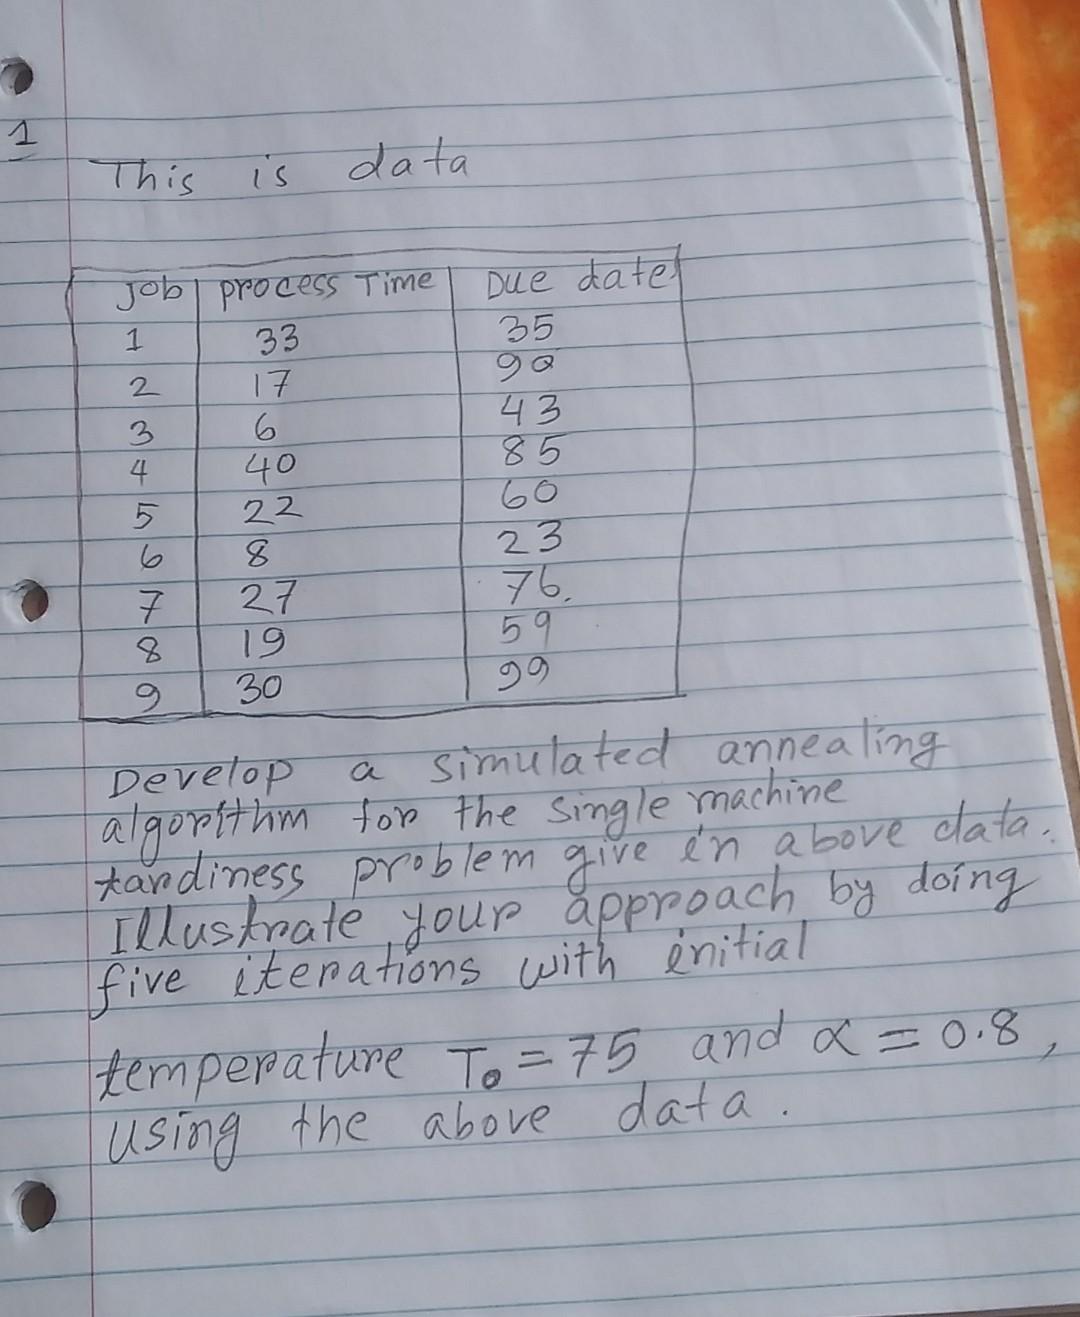 1
This is data
Job process Time Due date
1 33 35
2 17 90
3 6 43
4 40 85
5 22 60
6 8 23
7 27 76.
8 19 59
9 30 99
Develop a simulated annealing
algorithm for the single machine
tardiness problem give in above data.
Illustrate your approach by doing
five iterations with initial
temperature T₀ = 75 and α = 0.8,
using the above data.